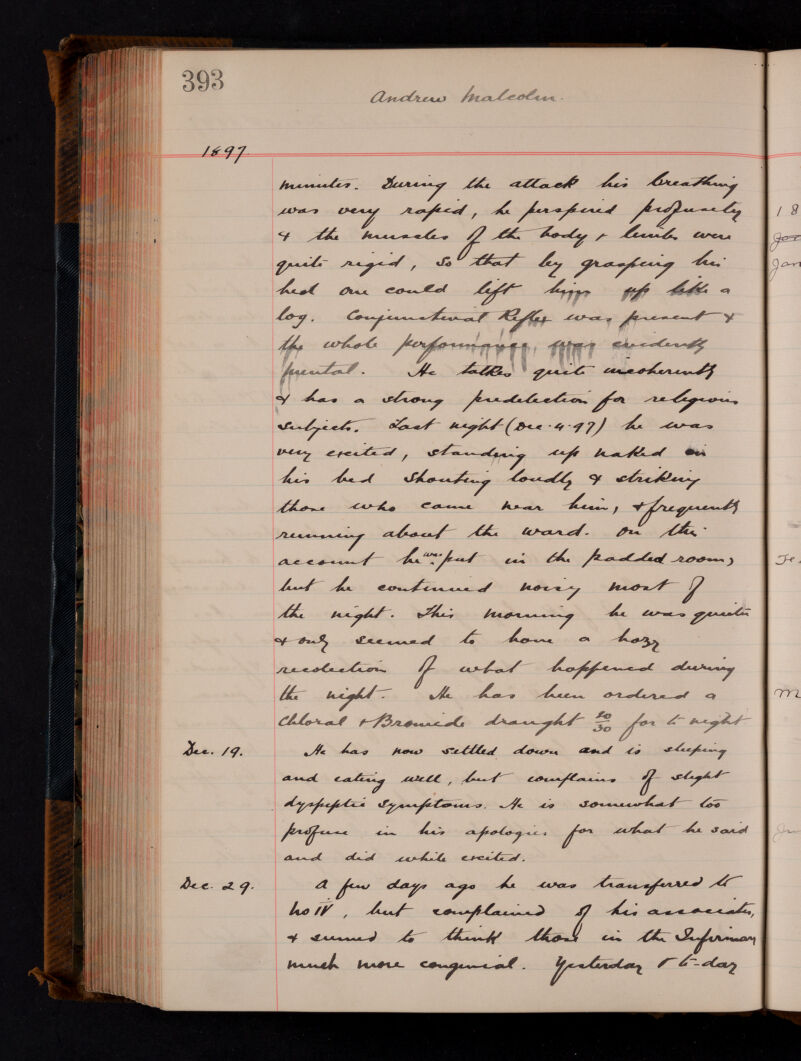 393
Andrew Malcolm.
1897
minutes. During the attack his breathing
was very rapid, he perspired profusely
& the muscles of the body & limbs were
quite rigid, so that by grasping his
head one could lift him up like a
log. Conjunctival Reflex was present &
the whole performance was evidently
mental. He talks quite incoherently
& has a strong predilection for religious
subjects. Last night (Dec. 4. 97) he was
very excited, standing up naked in
his bed shouting loudly & striking
those who came near him, & frequently
running about the ward. On this
account he was put in the padded room,
but he continued noisy most of
the night. This morning he was quieter
& only seemed to have a hazy
recolection of what happened during
the night. He has been ordered a
Chloral & Bromide draught 20/30 for to night
Dec. 19. He has now settled down and is sleeping
and eating well, but complains of slight
dyspeptic symptoms. He is somewhat too
profuse in his apologies for what he said
and did while excited.
Dec. 29. A few days ago he was transferred to
No IV, but complained of his associates,
& seemed to think those in the Infirmary
much more congenial. Yesterday & to-day
1 8
Jan